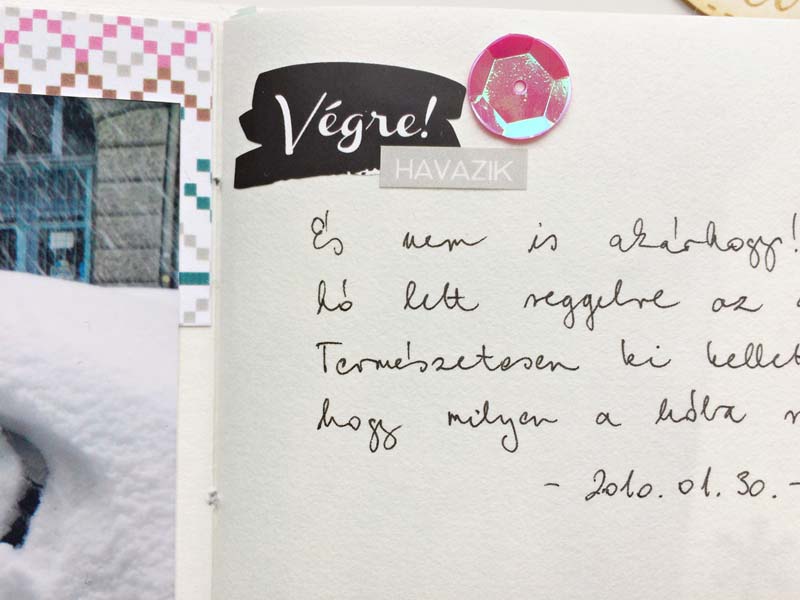 Végre!
HAVAZIK
És nem is akárhogy!
hó lett reggelre az
Természetesen ki kellet
hogy milyen a hóba
- 2010. 01. 30. -